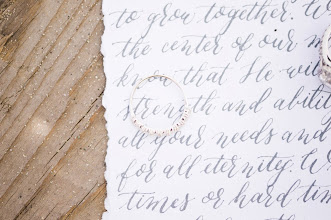 to grow together.
the center of our
know that He will
strength and ability
all your needs and
for all eternity.
times or hard times